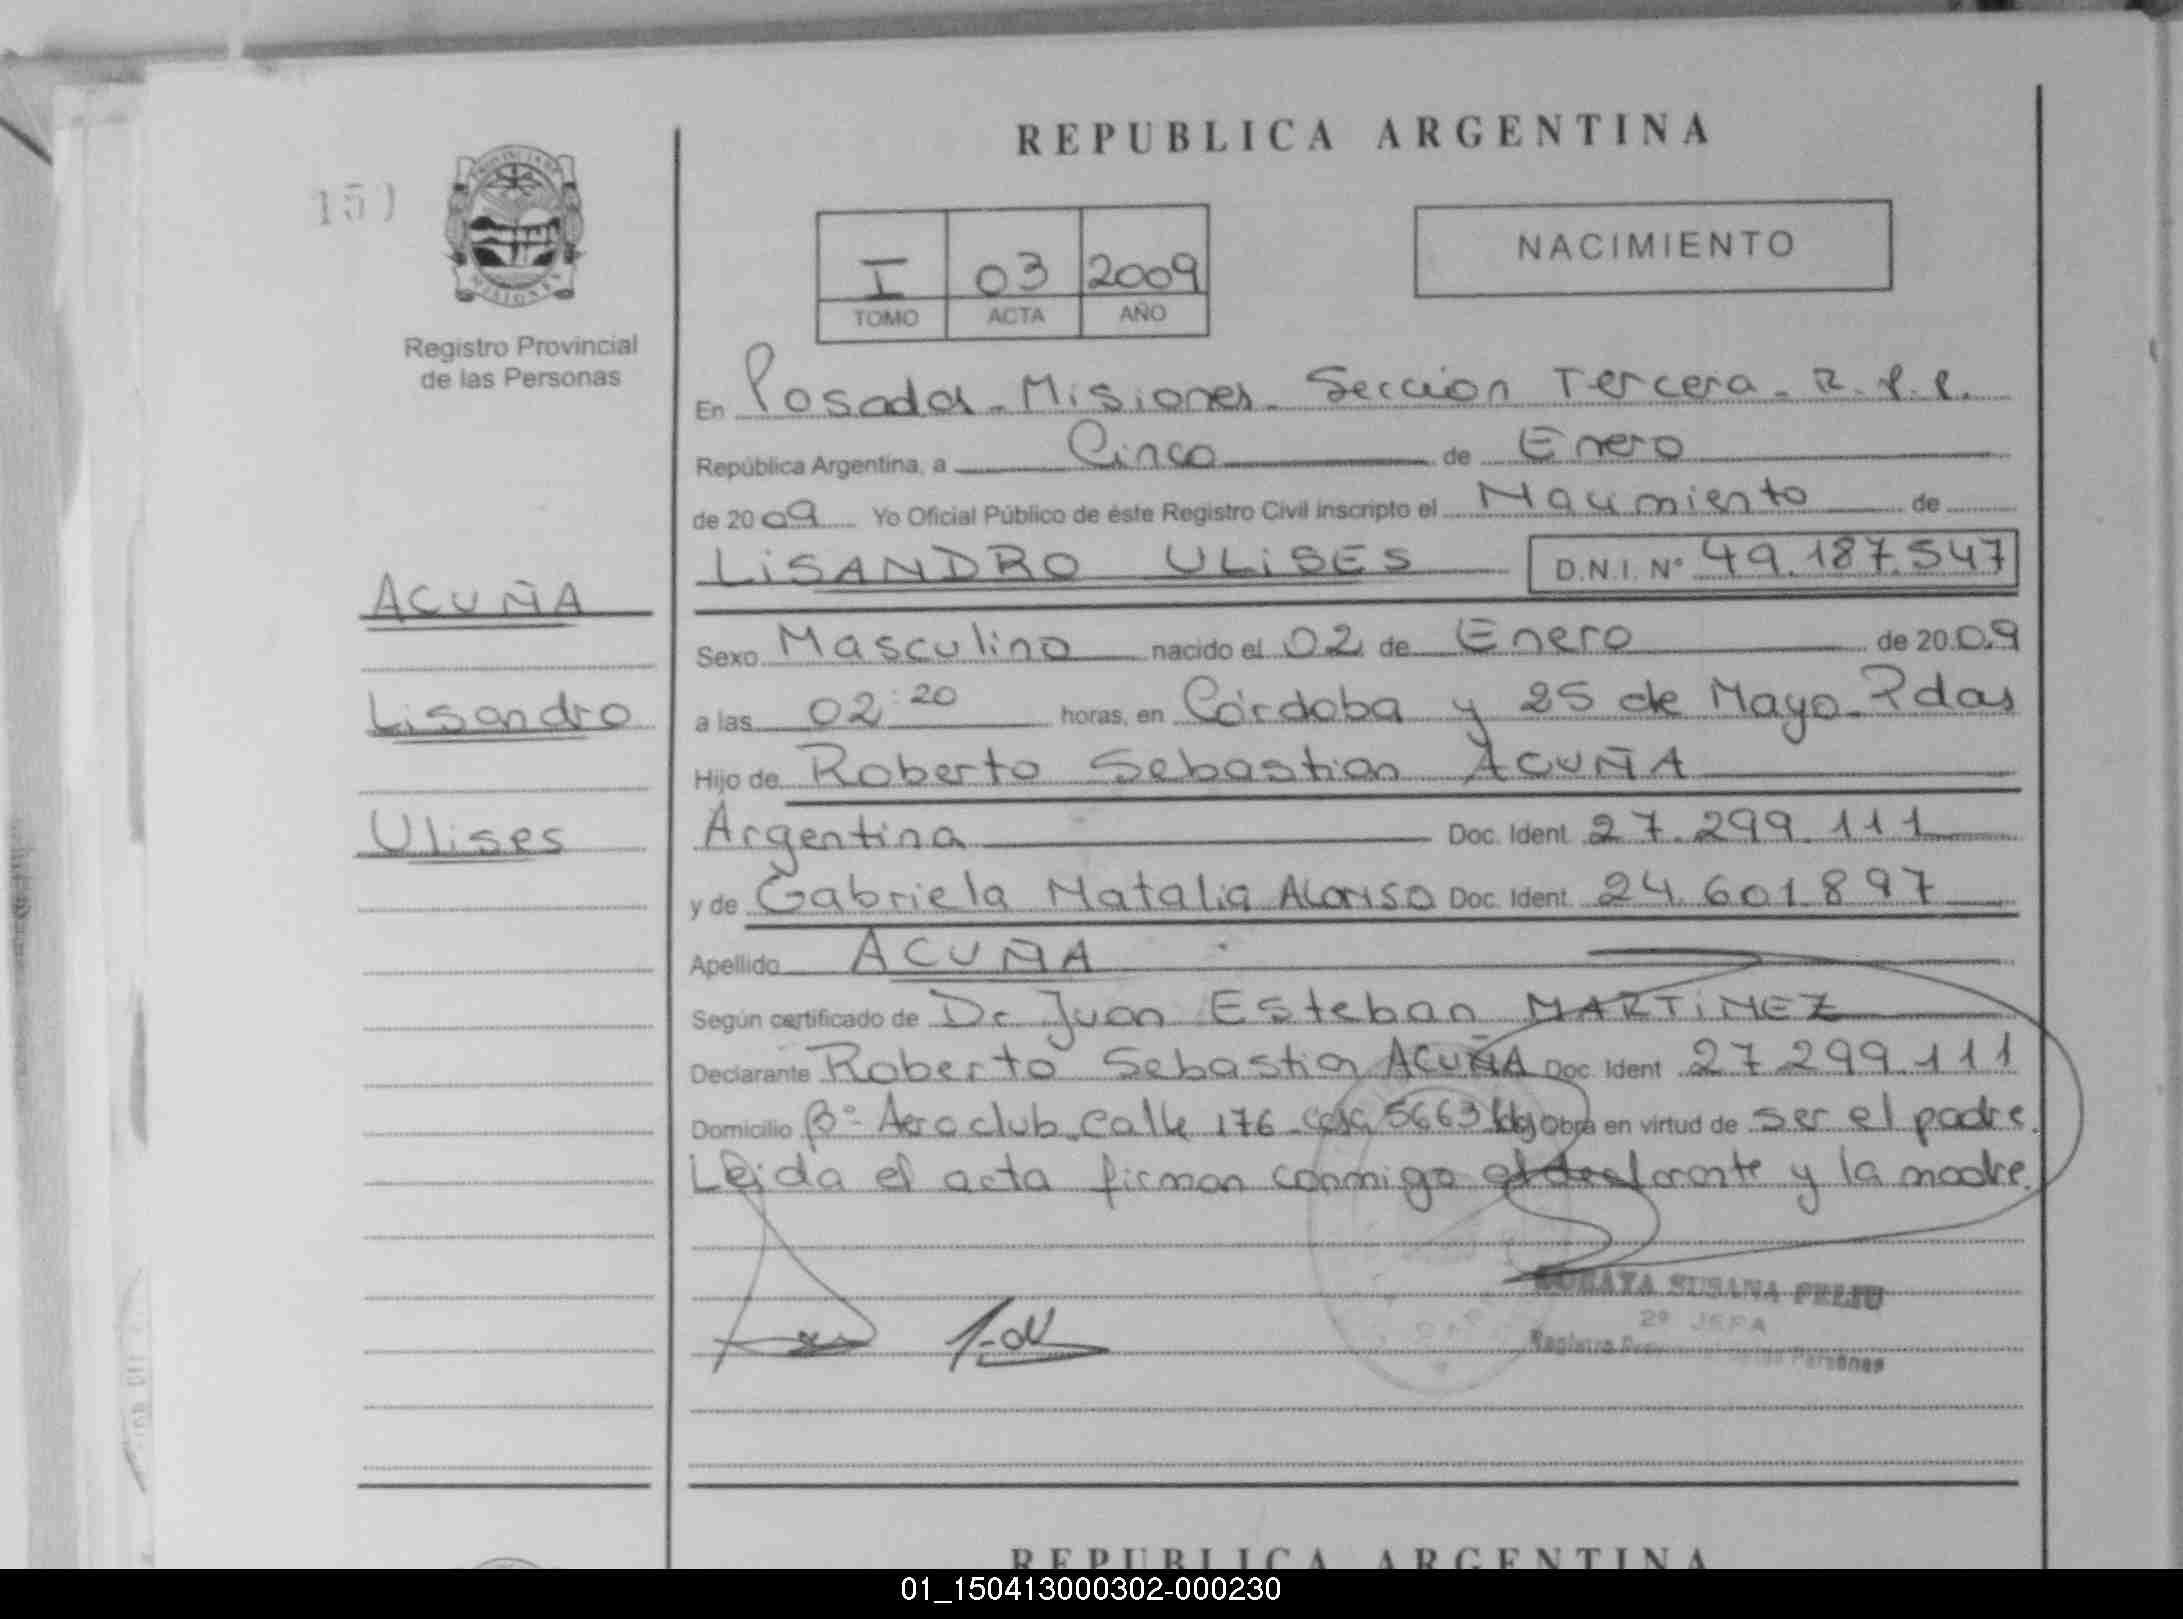 REPUBLICA ARGENTINA
PROVINCIA DE
MISIONES
Registro Provincial
de las Personas
I 03 2009
TOMO ACTA AÑO
NACIMIENTO
En Posadas - Misiones - Sección Tercera - R.P.P.
República Argentina, a Cinco de Enero
de 2009 Yo Oficial Público de éste Registro Civil inscripto el Nacimiento de
LISANDRO ULISES D.N.I. Nº 49.187.547
ACUÑA
Sexo Masculino nacido el 02 de Enero de 2009
Lisandro
a las 02:20 horas, en Córdoba y 25 de Mayo - Pdas
Hijo de Roberto Sebastian ACUÑA
Ulises
Argentina Doc. Ident. 27.299.111
y de Gabriela Natalia Alonso Doc. Ident. 24.601.897
Apellido ACUÑA
Según certificado de Dr Juan Esteban MARTINEZ
Declarante Roberto Sebastian ACUÑA Doc. Ident 27.299.111
Domicilio Bº Aeroclub calle 176 casa 5663 Obra en virtud de ser el padre.
Leida el acta firman conmigo el declarante y la madre.
SUSANA FELIU
2º JEFA
Registro Provincial de las Personas
REPUBLICA ARGENTINA
01_150413000302-000230